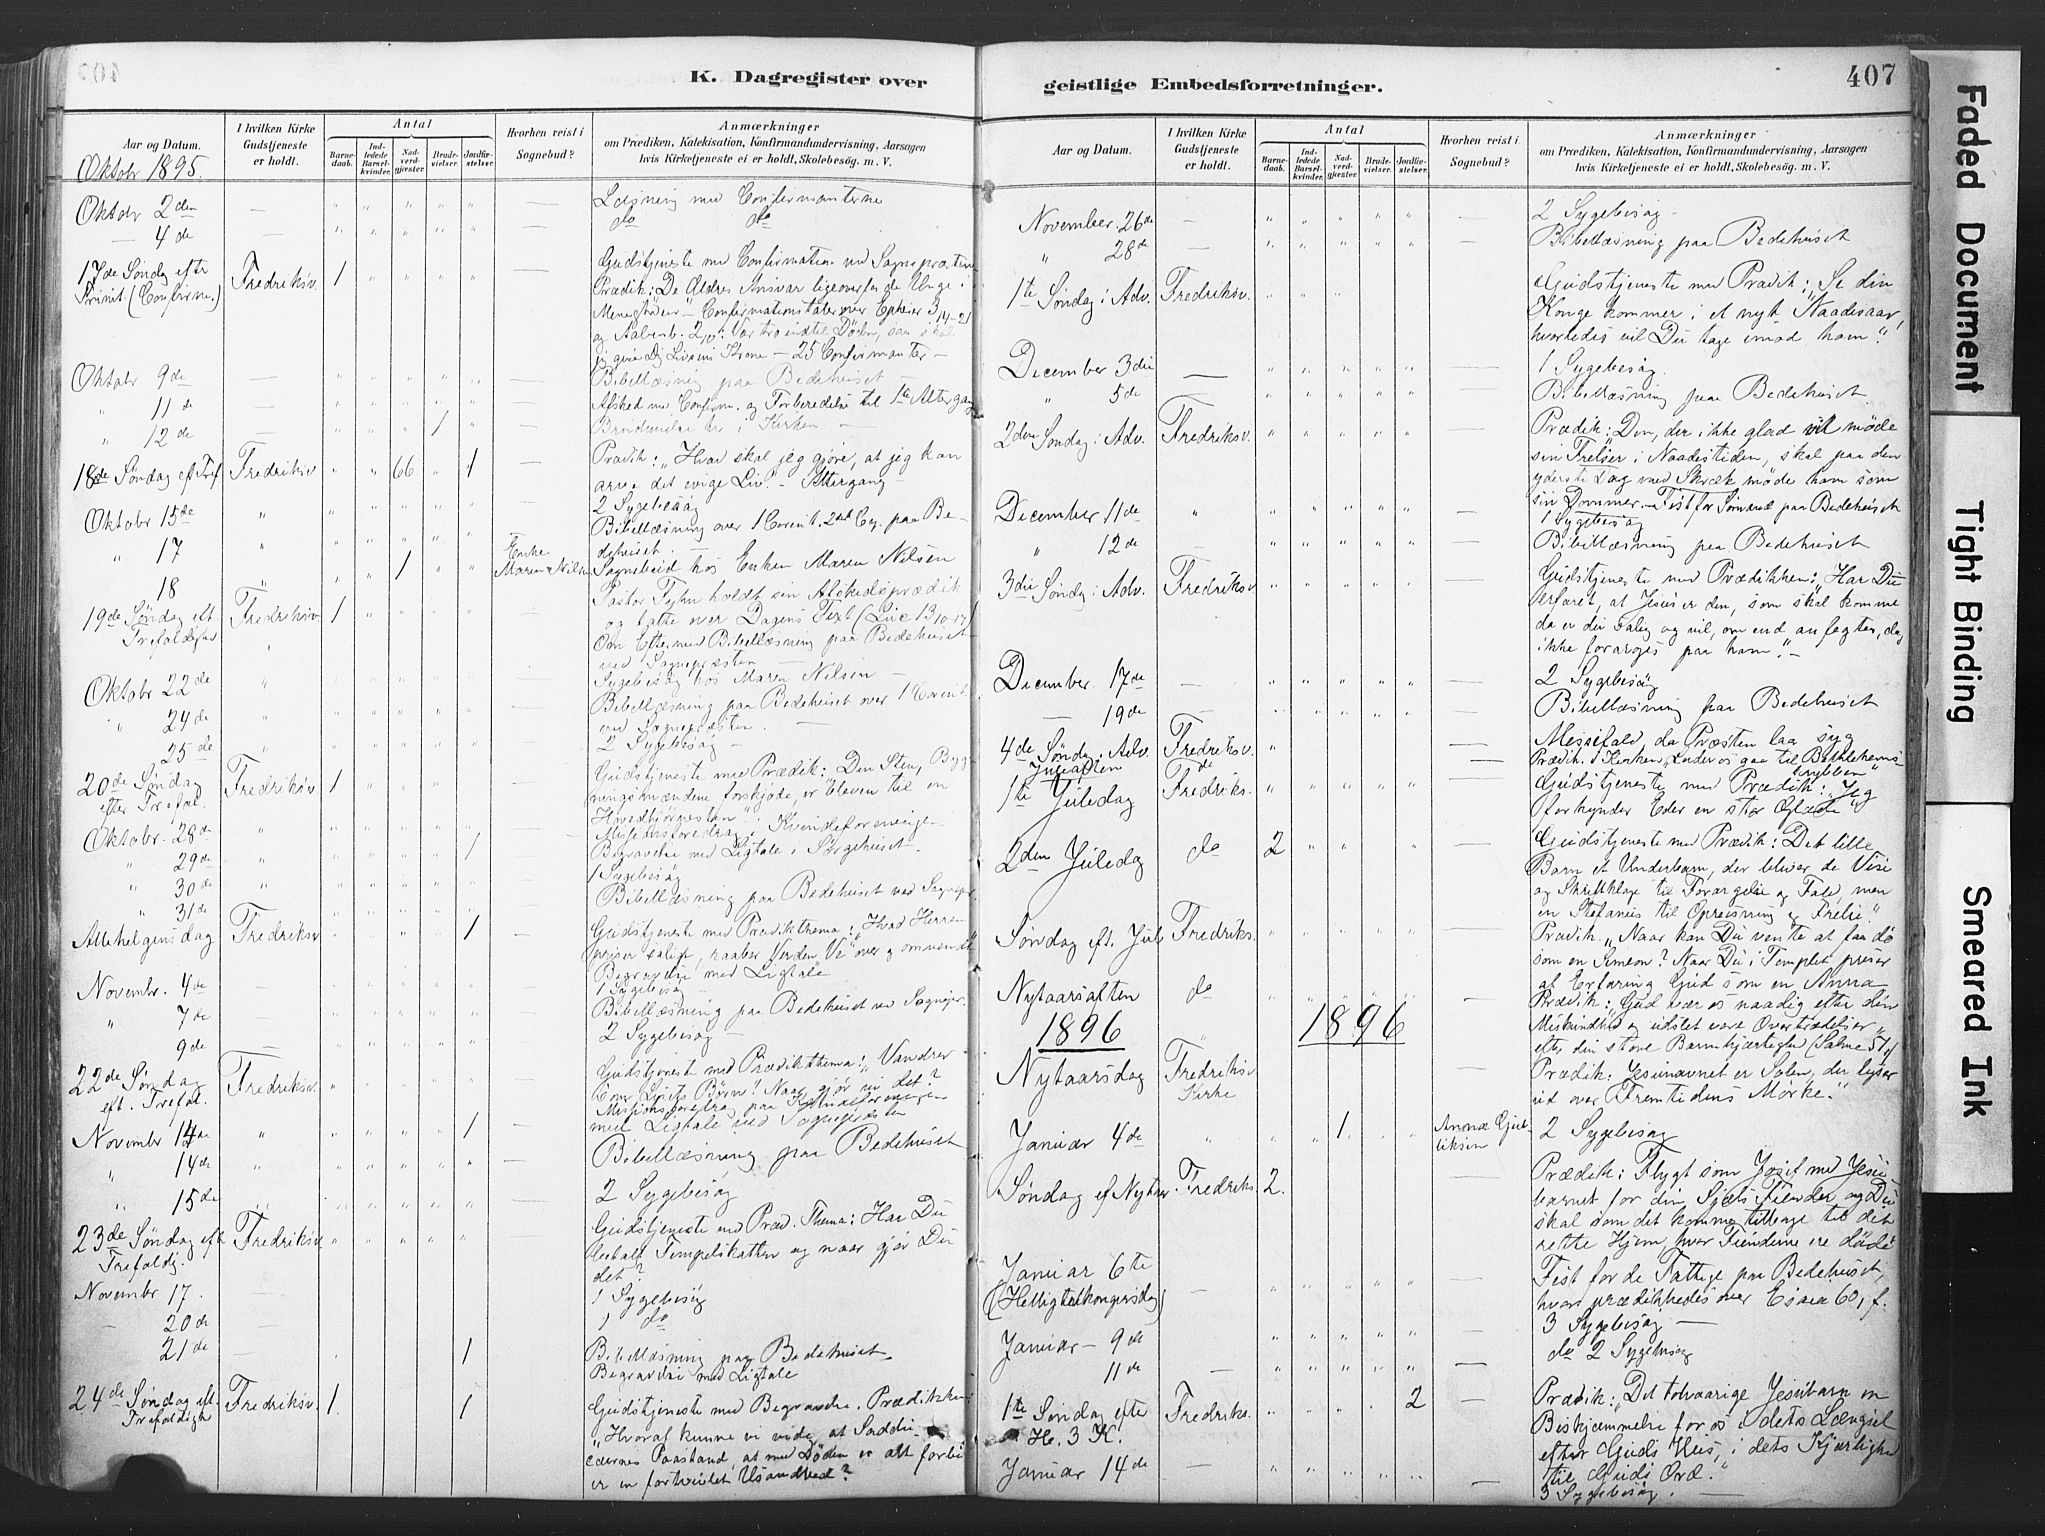 K. Dagregister over
Aar og Datum.
I hvilken Kirke Gudstjeneste er holdt.
Antal
Barnedaab.
Indledede Barselkvinder.
Nadverdgjæster
Brudevielser.
Jordfæstelser.
Hvorhen reist i Sognebud?
Anmærkninger
om Prædiken, Katekisation, Konfirmandundervisning, Aarsagen
hvis Kirketjeneste ei er holdt, Skolebesög. m. V.
Oktobr 1895.
Oktobr 2den Læsning med Confirmanterne
4de do do
17de Søndag efter Trinit. (Confirm.) Fredriksv. 1 Gudstjeneste med Confirmation ved Sognepræsten
Prædik: De Ældres Ansvar ligeoverfor de Unge i
Menigheden - Confirmationstaler over Epheser 3 14-21
og Aabenb. 2,10: Vær tro indtil Døden, saa skal
jeg give Dig Livsens Krone - 25 Confirmanter -
Oktobr 9de Bibellæsning paa Bedehuset -
" 11de Afsked med Confirm. og Forberedelse til 1te Altergang
" 12de 1 Brudevielse her i Kirken -
18de Søndag eft Tref Fredriksv 66 1 Prædik: "Hvad skal jeg gjøre, at jeg kan
arve det evige Liv." - Altergang -
Oktobr 15de " 2 Sygebesøg
" 17 " Bibellæsning over 1 Corint. 2det Cap. paa Bedehuset. -
18 " 1 Enke Maren Nilsen Sognebud hos Enken Maren Nilsen
19de Søndag eft Trefoldighed Fredriksv 1 Pastor Tyhn holdt sin Afskedsprædik
og talte over Dagens Text (Luc 13 10-17)
Om Efterm. Bibellæsning paa Bedehuset
ved Sognepræsten -
Oktobr 22de " Sygebesøg hos Maren Nilsen -
" 24de " Bibellæsning paa Bedehuset over 1 Corint
ved Sognepræsten -
25de " 2 Sygebesøg -
20de Søndag efter Trefol. Fredriksv 1 Gudstjeneste med Prædik: Den Sten, Bygningsmændene forskjøde, er bleven til en
Hovedhjørnesten".
Oktobr. 28de " Missionsforedrag i Kvindeforeningen
" 29de " 1 Begravelse med Ligtale i Sørgehuset.
" 30de " 1 Sygebesøg
" 31de Bibellæsning paa Bedehuset ved Sognepr.
Allehelgensdag Fredriksv 1 Gudstjeneste med Prædikthema: Hvad Herren
priser saligt, raaber Verden Ve over og omvendt"
Begravelse med Ligtale
Novembr. 4de 1 Sygebesøg -
" 7de Bibellæsning paa Bedehuset ved Sognepr.
9de 2 Sygebesøg -
22de Søndag eft. Trefol. Fredriksv. Gudstjeneste med Prædikthema: "Vandrer
som Lysets Børn! Naar gjør vi det?
Missionsforedrag paa Kvindeforeningen
Novembr 14de " 1 med Ligtale ved Sognepræsten
" 14de " Bibellæsning paa Bedehuset
" 15de " 2 Sygebesøg
23de Søndag efter Trefoldig. Fredriksv Gudstjeneste med Præd. Thema: Har Du
betalt Tempelskatten og naar gjør Du
det?
Novembr 17. 1 Sygebesøg
20de 1 do
21de 1 Bibellæsning paa Bedehuset
Begravelse med Ligtale
24de Søndag eft. Trefoldigh Fredriksv. 1. 1 Gudstjeneste med Begravelse. Prædikken:
"Hvoraf kunne vi vide, at Saddu-
cæernes Paastand, at med Døden er alt forbi
er en fortvivlet Usandhed?
geistlige Embedsforretninger.
407
Aar og Datum.
I hvilken Kirke Gudstjeneste er holdt.
Antal
Barnedaab.
Indledede Barselkvinder.
Nadverdgjæster
Brudevielser.
Jordfæstelser.
Hvorhen reist i Sognebud?
Anmærkninger
om Prædiken, Katekisation, Konfirmandundervisning, Aarsagen
hvis Kirketjeneste ei er holdt, Skolebesög. m. V.
November 26de 2 Sygebesøg -
" 28de Bibellæsning paa Bedehuset
1te Søndag i Adv. Fredriksv. Gudstjeneste med Prædik: "Se din
Konge kommer i et nyt Naadesaar,
hvorledes vil Du tage imod ham".
December 3die 1 Sygebesøg.
" 5de Bibellæsning paa Bedehuset
2den Søndag i Adv. Fredriksv. Prædik: "Den, der ikke glad vil møde
sin Frelser i Naadestiden, skal paa den
yderste Dag med Skræk møde ham som
sin Dommer - Fest for Sømænd paa Bedehuset
December 11de " 1 Sygebesøg
" 12de Bibellæsning paa Bedehuset
3die Søndag i Adv. Fredriksv. Gudstjeneste med Prædikken: "Har Du
erfaret, at Jesus er den, som skal komme
da er du salig og vil, om end anfægtet, dog
ikke forarges paa ham". -
December 17de 2 Sygebesøg
19de Bibellæsning paa Bedehuset
4de Sønda i Adv. Fredriksv. Messefald, da Præsten laa syg
Juleaften do Prædik. i Kirken, Lader os gaa til Bethlehems-
krybben"
1te Juledag Fredriks. Gudstjeneste med Prædik: "Jeg
forkynder Eder en stor Glæde"
2den Juledag do 2 Gudstjeneste med Prædik: Det lille
Barn et Underbarn, der bliver de Vise
og Skriftkloge til Forargelse og Fald, men
en Stefanus til Opreisning og Frelse"
Søndag eft. Jul Fredriks. Prædik. "Naar kan Du vente at faa dø
som en Simeon? Naar Du i Templet priser
af Erfaring Gud som en Anna
Nytaarsaften do Prædik: "Gud vær os naadig efter din
Miskundhed og udslet vore Overtrædelser
efter din store Barmhjærtighed (Salme 51)
1896 1896
Nytaarsdag Fredriksv Kirke Prædik: Jesunavnet er Solen, der lyser
ud over Fremtidens Mørke."
Januar 4de 1. 2 Sygebesøg
Søndag ef Nytaar Fredriks. 2. Prædik: Flygt som Josef med Jesu-
barnet for din Sjæls Fiender og Du
skal som det komme tilbage til det
rette Hjem, hvor Fienderne ere døde
Januar 6te (Helligtrekongersdag) Fest for de Fattige paa Bedehuset,
hvor prædikkedes over Esaia 60,1 f.
Januar - 9de 3 Sygebesøg -
11de do 2 Sygebesøg
1te Søndag efter H. 3 K. Fredriks. 2 Prædik: "Det tolvaarige Jesubarn en
Beskjæmmelse for os i dets Længsel
efter Guds Hus, i dets Kjærlighe
til Guds Ord."
Januar 14de 3 Sygebesøg. -
Faded Document
Tight Binding
Smeared Ink